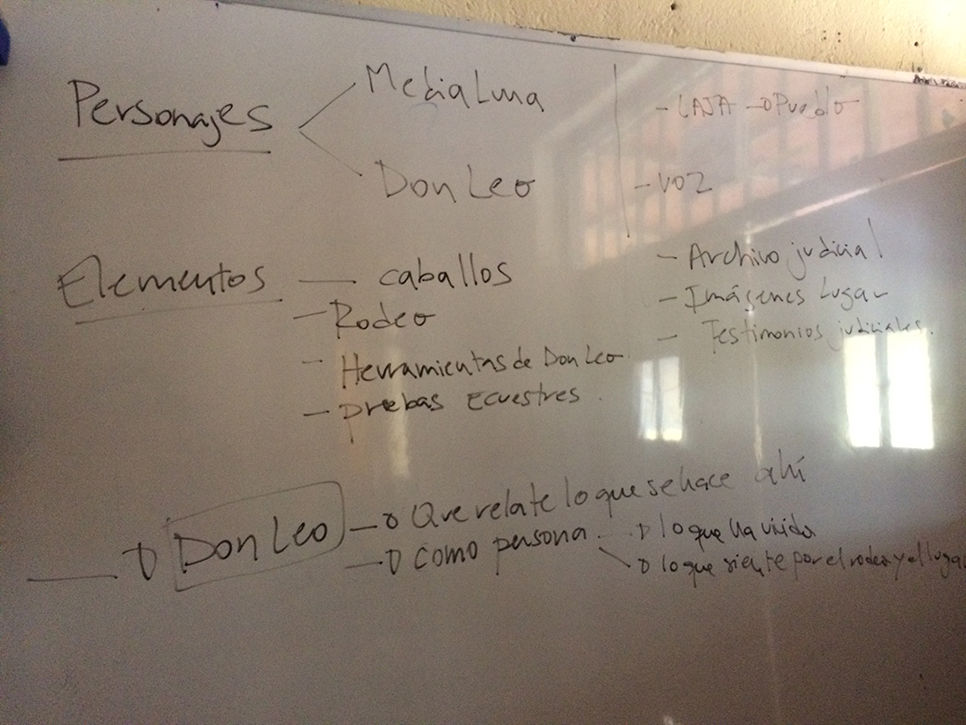 Personajes
Media Luna
Don Leo
- LAJA → Pueblo
- VOZ
Elementos
— caballos
- Rodeo
- Herramientas de Don Leo
- pruebas Ecuestres.
- Archivo judicial
- Imágenes Lugar
- Testimonios judiciales.
Don Leo
→ Que relate lo que se hace ahí
→ Como persona
→ lo que ha vivido
→ lo que siente por el rodeo y el lugar